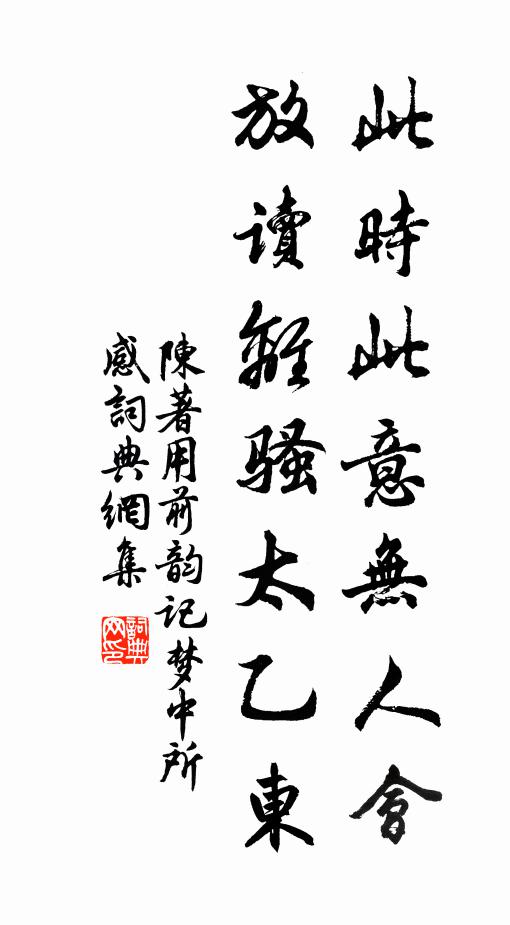 此時此意無人會
放讀離騷太乙東
陳著用前韵記梦中所
感詞典網集
詞典网印